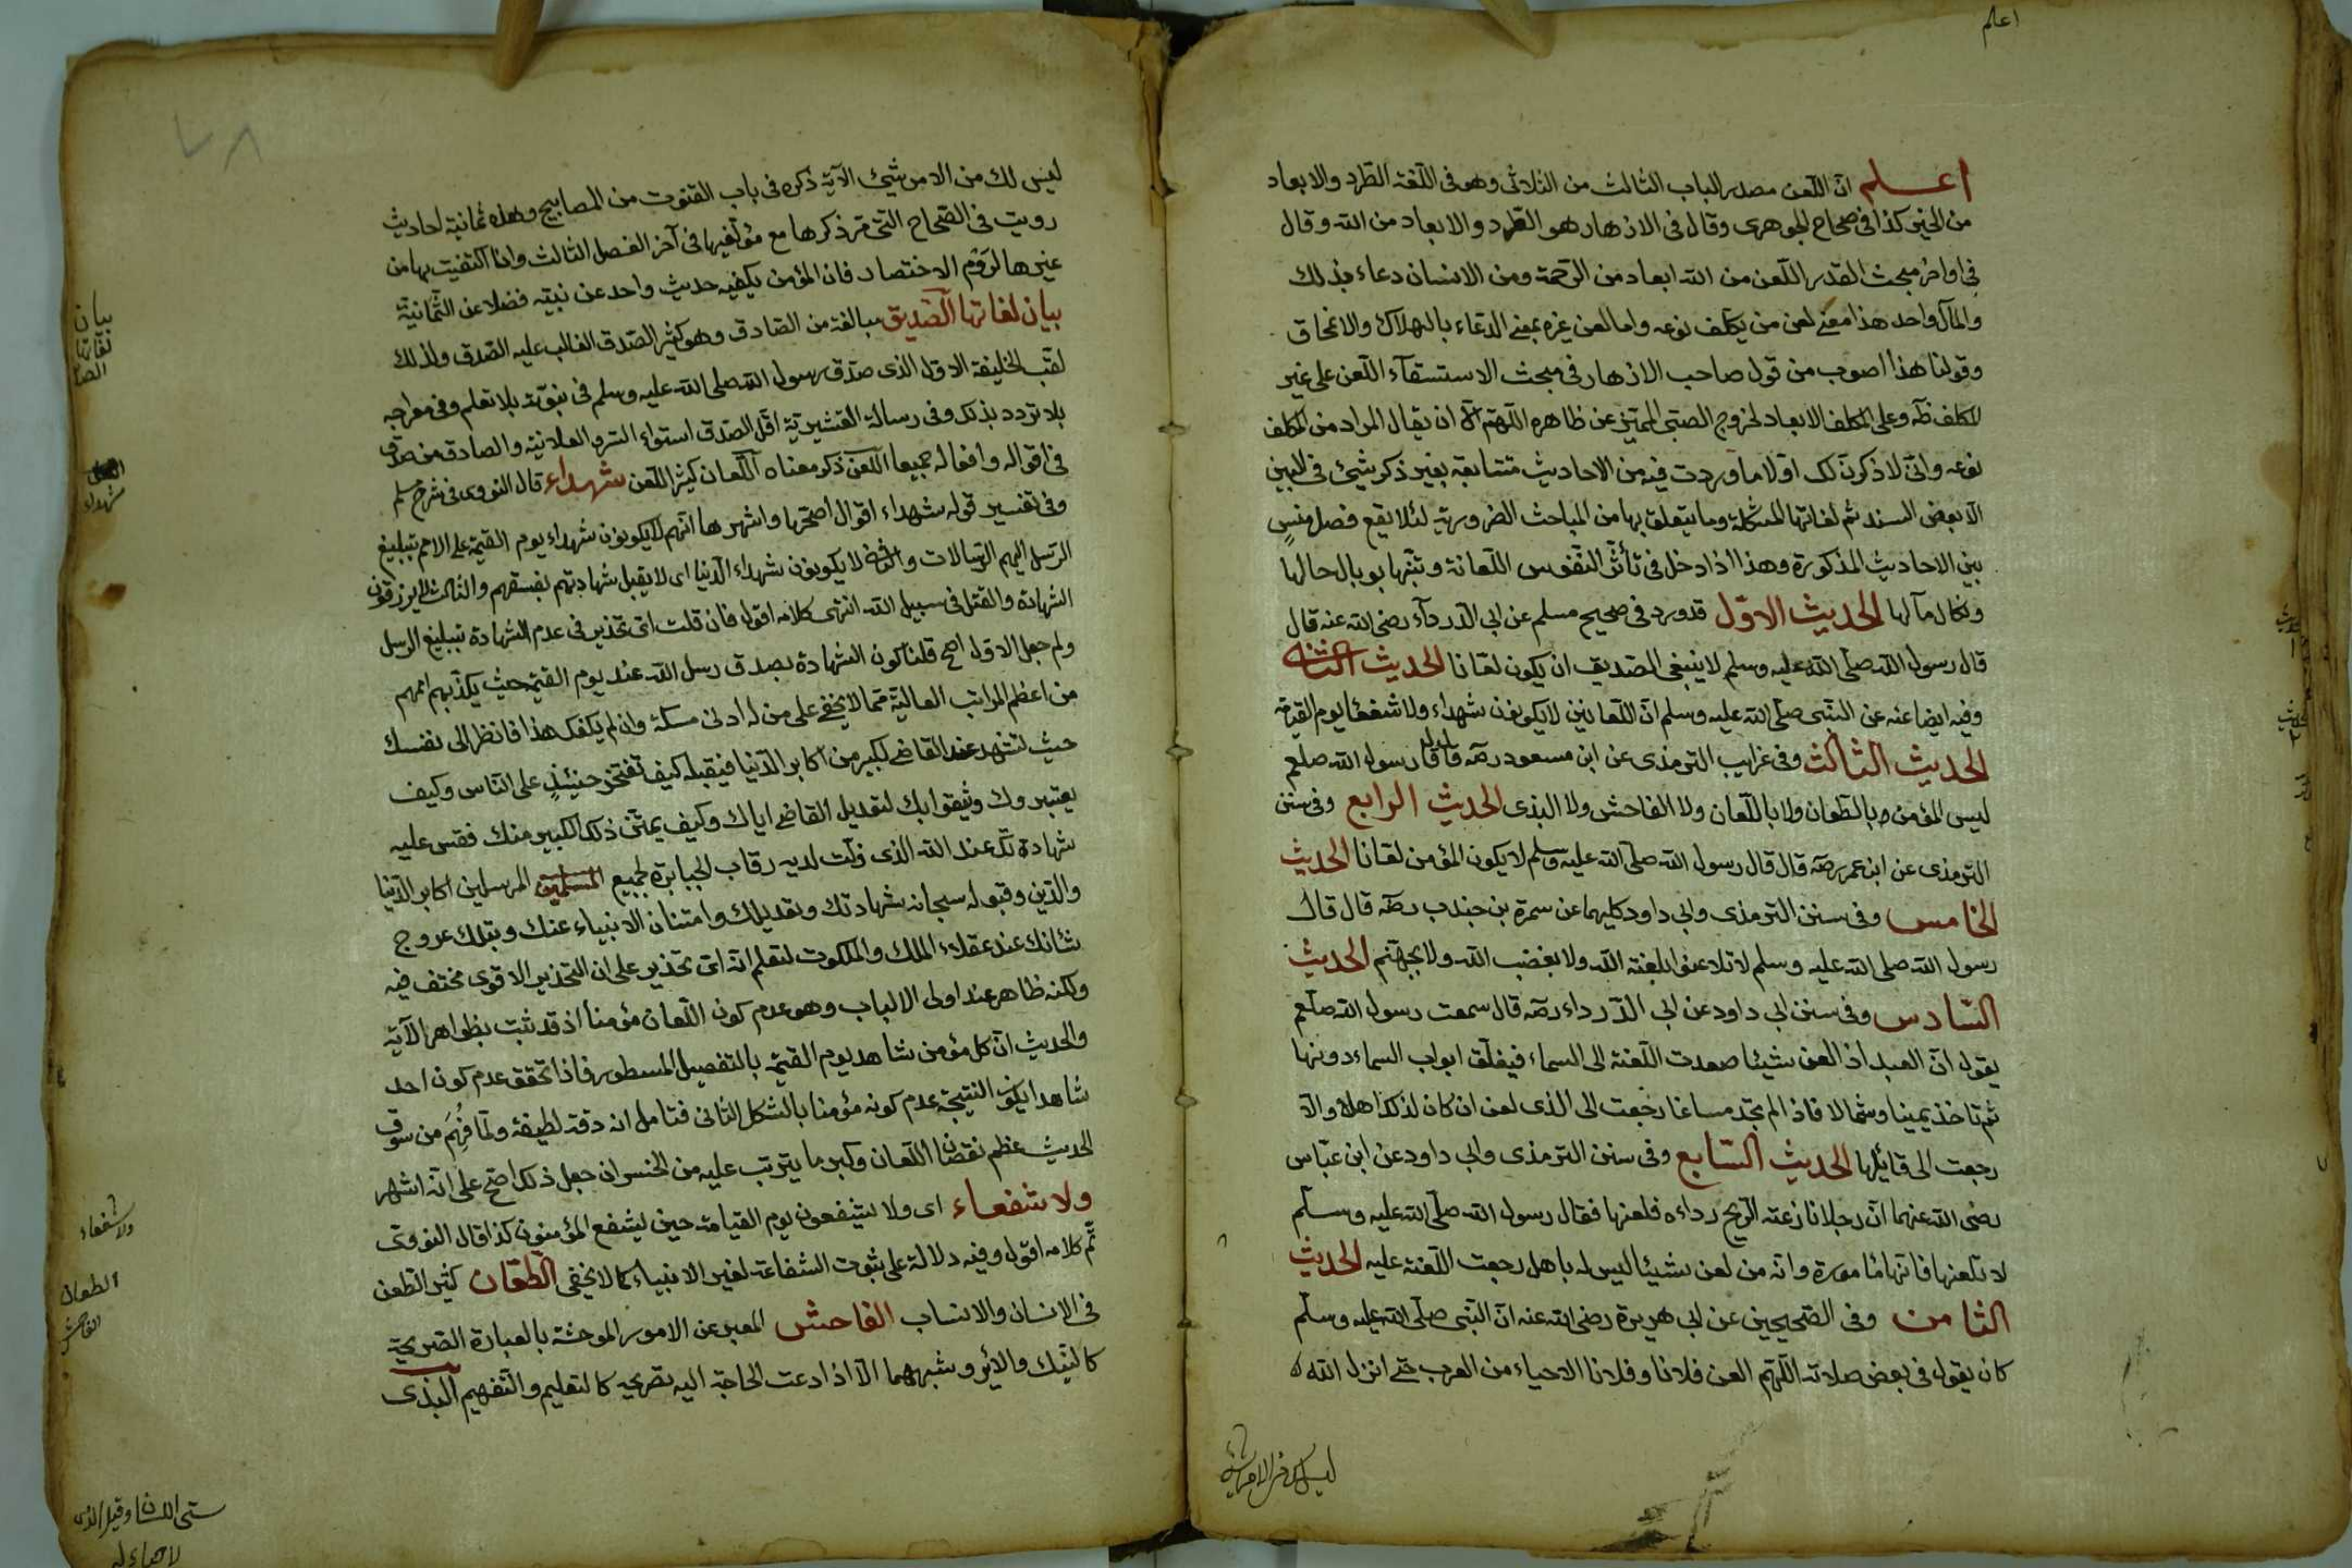 اعلم
اعلم ان اللعن مصدر الباب الثالث من الثلاثى وهو فى اللغة الطرد والابعاد
من الخير كذا فى صحاح الجوهرى وقال فى الازهار هو الطرد والابعاد من الله وقال
فى اواخر مبحث القدر اللعن من الله ابعاد من الرحمة ومن الانسان دعاء بذلك
والمآل واحد هذا معنى لعن من يكلف نوعه واما لعن غيره بمعنى الدعاء بالهلاك والانمحاق
وقولنا هذا اصوب من قول صاحب الازهار فى مبحث الاستسقآء اللعن على غير
المكلف وعلى المكلف الابعاد لخروج الصبى المميز عن ظاهره اللهم الا ان يقال المراد من المكلف
نوعه وانى لاذكرن لك اولا ما وردت فيه من الاحاديث متتابعة بغير ذكر شيئ فى البين
الا بعض السند ثم لغاتها المشكلة وما يتعلق بها من المباحث الضرورية لئلا يقع فصل منس
بين الاحاديث المذكورة وهذا اذا دخل فى تأثر النفوس اللعانة وتنبها بوبال حالها
ونكال مآلها الحديث الاول قد ورد فى صحيح مسلم عن ابى الدردآء رضى الله عنه قال
قال رسول الله صلى الله عليه وسلم لا ينبغى لصديق ان يكون لعانا الحديث الثانى
وفيه ايضا عنه عن النبى صلى الله عليه وسلم ان اللعانين لا يكونون شهداء ولا شفعا يوم القيمة
الحديث الثالث وفى غرايب الترمذى عن ابن مسعود رضه قال قال رسول الله صلعم
ليس المؤمن بالطعان ولا باللعان ولا الفاحش ولا البذى الحديث الرابع وفى سنن
الترمذى عن ابن عمر رضه قال قال رسول الله صلى الله عليه وسلم لا يكون المؤمن لعانا الحديث
الخامس وفى سنن الترمذى وابى داود كليهما عن سمرة بن جندب رضه قال قال
رسول الله صلى الله عليه وسلم لا تلاعنوا بلعنة الله ولا بغضب الله ولا بجهنم الحديث
السادس وفى سنن ابى داود عن ابى الدرداء رضه قال سمعت رسول الله صلعم
يقول ان العبد اذا لعن شيئا صعدت اللعنة الى السماء فيغلق ابواب السماء دونها
ثم تاخذ يمينا وشمالا فاذا لم تجد مساغا رجعت الى الذى لعن ان كان لذلك اهلا والا
رجعت الى قائلها الحديث السابع وفى سنن الترمذى وابى داود عن ابن عباس
رضى الله عنهما ان رجلا نازعته الريح رداءه فلعنها فقال رسول الله صلى الله عليه وسلم
لا تلعنها فانها مأمورة وانه من لعن شيئا ليس له باهل رجعت اللعنة عليه الحديث
الثامن وفى الصحيحين عن ابى هريرة رضى الله عنه ان النبى صلى الله عليه وسلم
كان يقول فى بعض صلاته اللهم العن فلانا وفلانا الاحياء من العرب حتى انزل الله
ليس لك من الامر شئ
ليس لك من الامر شيئ الآية ذكره فى باب القنوت من المصابيح وهذه ثمانية احاديث
رويت فى الصحاح التى مر ذكرها مع مؤلفيها فى آخر الفصل الثالث وانا اكتفيت بها من
غيرها لروم الاختصار فان المؤمن يكفيه حديث واحد عن نبيه فضلا عن الثمانية
بيان لغاتها الصديق مبالغة من الصادق وهو كثير الصدق الغالب عليه الصدق ولذلك
لقب الخليفة الاول الذى صدق رسول الله صلى الله عليه وسلم فى نبوته بلا تعلم وفى معراجه
بلا تردد بذلك وفى رسالة القشيرية اقل الصدق استواء السر والعلانية والصادق من صدق
فى اقواله وافعاله جميعا اللعن ذكر معناه اللعان كثير اللعن شهداء قال النووى فى شرح مسلم
وفى تفسير قوله شهداء اقوال اصحها واشهرها انهم لا يكونون شهداء يوم القيمة على الامم بتبليغ
الرسل اليهم الرسالات والثانى لا يكونون شهداء الدنيا اى لا يقبل شهادتهم بفسقهم والثالث لا يرزقون
الشهادة والقتل فى سبيل الله انتهى كلامه اقول فان قلت اى تحذير فى عدم الشهادة بتبليغ الرسل
ولم جعل الاول اصح قلنا كون الشهادة بصدق رسل الله عند يوم القيمة حيث يكذبهم اممهم
من اعظم المراتب العالية مما لا يخفى على من له ادنى مسكة وان لم يكفك هذا فانظر الى نفسك
حيث لتشهد عند القاضى لكبير من اكابر الدنيا فيقبله كيف تفتخر حينئذ على الناس وكيف
يعتبروك وثيقوا بك لتعديل القاضى اياك وكيف يمتن ذلك الكبير منك فقس عليه
شهادتك عند الله الذى ذلت لديه رقاب الجبابرة لجميع المرسلين اكابر الدنيا
والدين وقبوله سبحانه شهادتك وتعديلك وامتنان الانبياء عنك وبتلك عروج
شانك عند عقلاء الملك والملكوت لتعلم انه اى تحذير على ان التحذير الاقوى مختف فيه
ولكنه ظاهر عند اولى الالباب وهو عدم كون اللعان مؤمنا اذ قد ثبت بظواهر الآية
والحديث ان كل مؤمن شاهد يوم القيمة بالتفصيل المسطور فاذا تحقق عدم كون احد
شاهدا يكون النتيجة عدم كونه مؤمنا بالشكل الثانى فتامل انه دقة لطيفة ولما فهم من سوق
الحديث عظم نقصان اللعان وكبر ما يترتب عليه من الخسران جعل ذلك اصح على انه اشهر
ولا شفعاء اى ولا يشفعون يوم القيامة حين يشفع المؤمنون كذا قال النووى
تم كلامه اقول وفيه دلالة على ثبوت الشفاعة لغير الانبياء كما لا يخفى الطعان كثير الطعن
فى الانسان والانساب الفاحش المعبر عن الامور الموحشة بالعبارة الصريحة
كالنيك والاير وشبههما الا اذا دعت الحاجة اليه تصريحه كالتعليم والتفهيم البذى
٧٨
بيان
لغاتها
شهداء
ولا شفعاء
الطعان
الفاحش